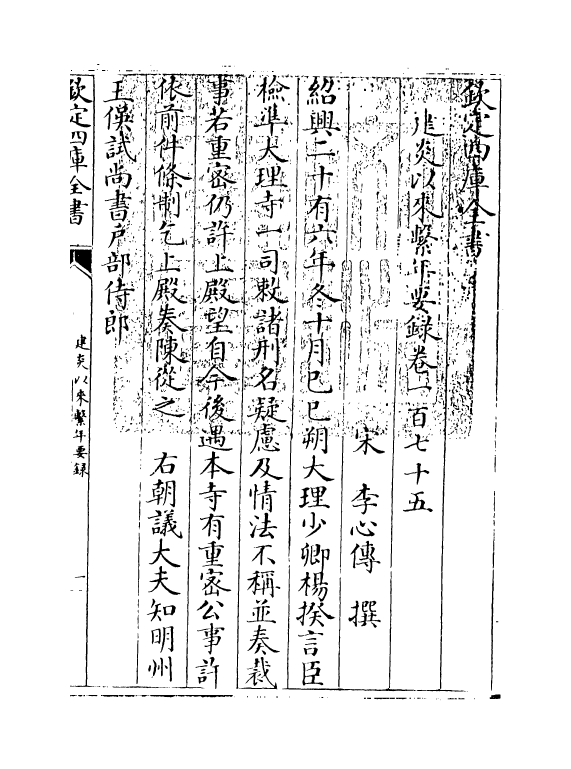 欽定四庫全書
建炎以來繫年要錄卷一百七十五
宋 李心傳 撰
紹興二十有六年冬十月己巳朔大理少卿楊揆言臣
檢準大理寺一司敕諸刑名疑慮及情法不稱並奏裁
事若重密仍許上殿望自今後遇本寺有重密公事許
依前件條制乞上殿奏陳從之 右朝議大夫知明州
王俁試尚書戶部侍郎
欽定四庫全書
建炎以來繫年要錄
一